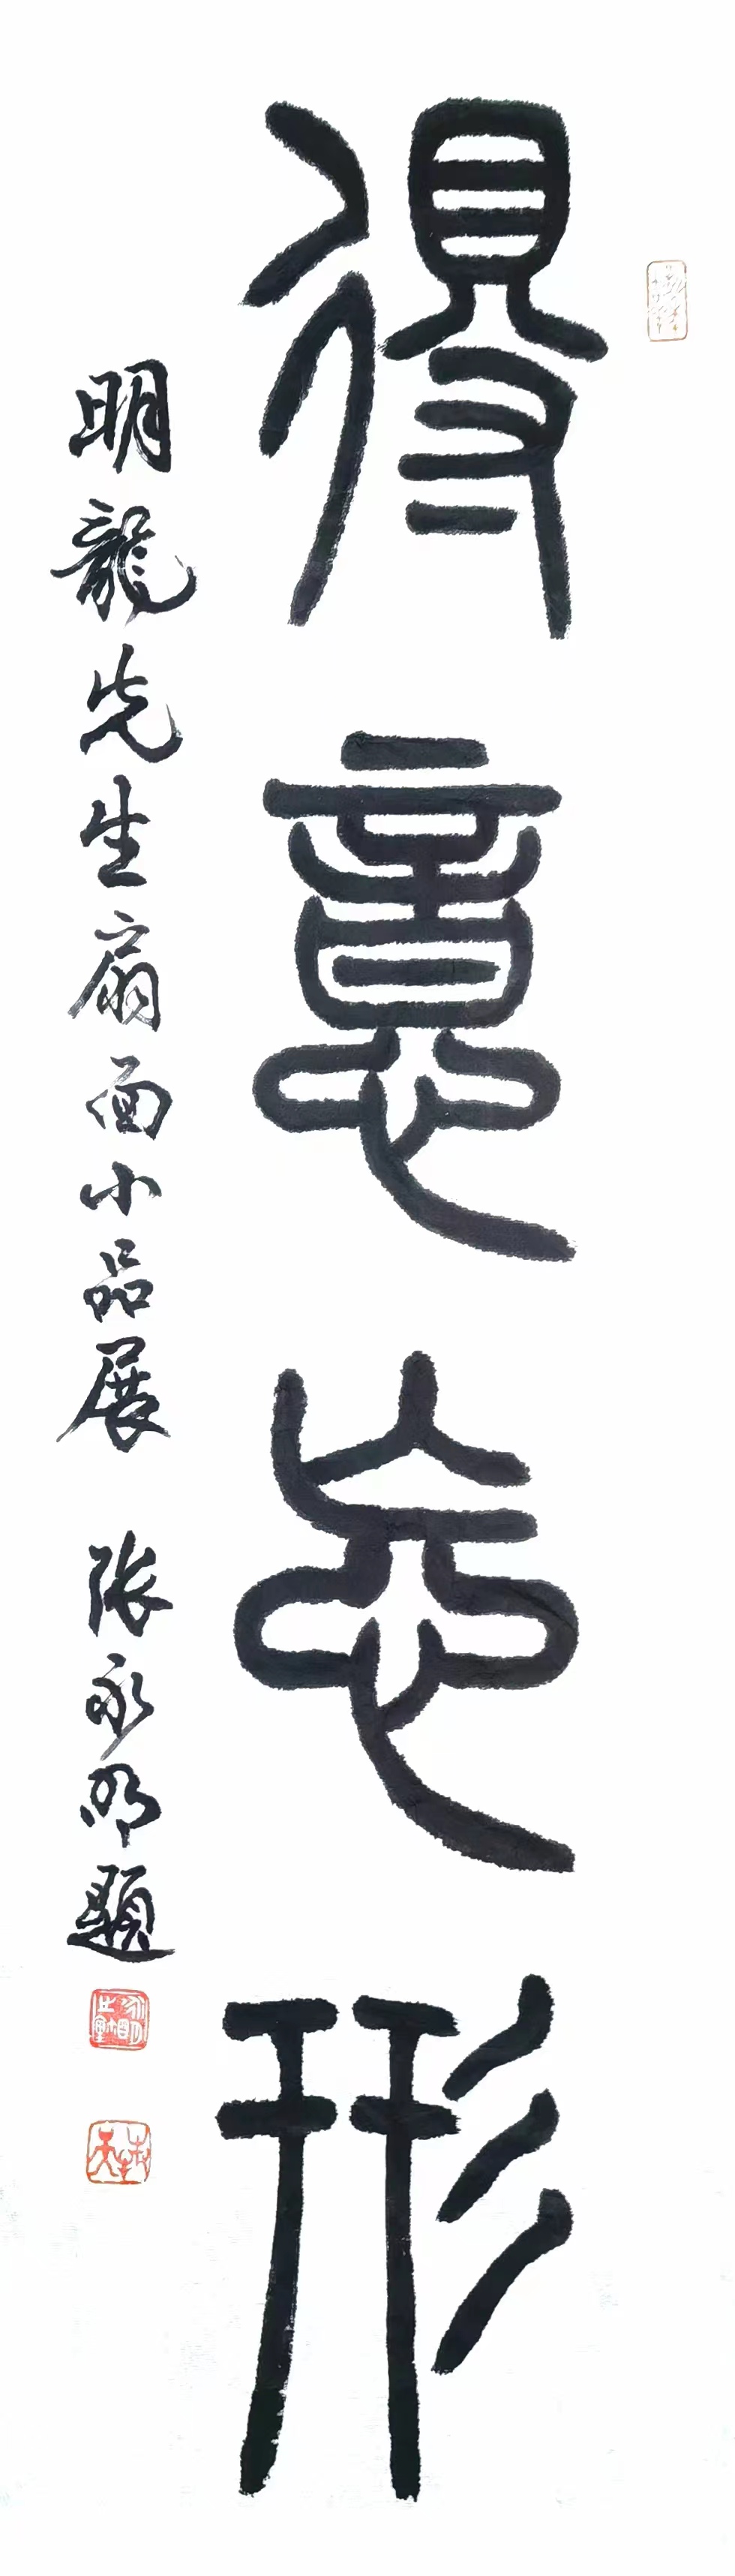 得意忘形
明龍先生扇面小品展 张永明題